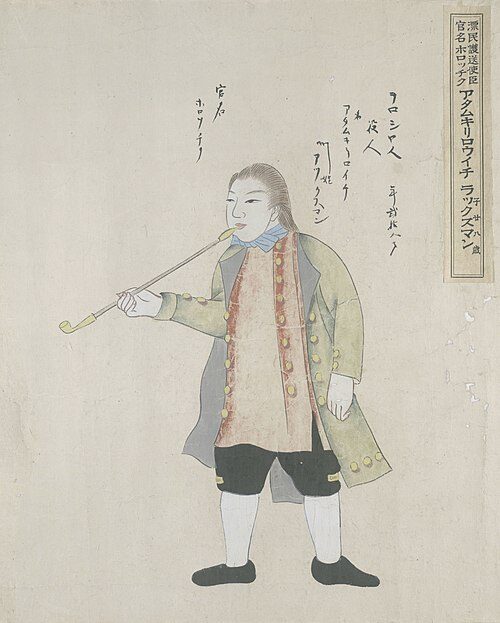 漂民護送使臣
官名ホロッチク
アタムキリロウイチ ラックスマン
子廿八歳
ヲロシヤ人 年貮拾八才
役人
名 アタムキリロイチ
姓
官名
ホロフチク